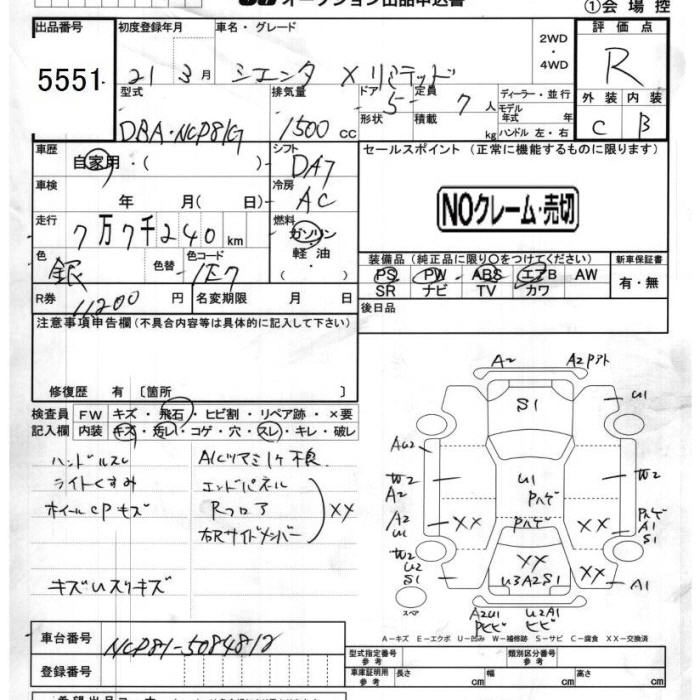 オークション出品申込書
①会場控
出品番号 初度登録年月 車名・グレード 2WD ・ 4WD 評価点
5551 21 3月 シエンタ X リミテッド R
型式 排気量 ドア 5 定員 7人 ディーラー・並行 外装 内装
DBA・NCP81G 1500cc 形状 積載 kg モデル年式 年 ハンドル 左・右 C B
車歴 自家用・( ) シフト DA7 セールスポイント(正常に機能するものに限ります)
車検 年 月( 日) 冷房 AC
NOクレーム・売切
走行 7万7千240km 燃料 ガソリン・軽油・( )
色 銀 色替 色コード 1E7
装備品(純正品に限り○をつけてください) 新車保証書
PS PW ABS エアB AW 有・無
SR ナビ TV カワ
R券 11200円 名変期限 月 日 後日品
注意事項申告欄(不具合内容等は具体的に記入して下さい)
修復歴 有〔箇所 〕
検査員記入欄 FW キズ・飛石・ヒビ割・リペア跡・×要
内装 キズ・汚レ・コゲ・穴・スレ・キレ・破レ
ハンドルスレ A/Cツマミ1ケ不良
ライトくすみ エンドパネル
ホイールCPキズ Rフロア XX
右Rサイドメンバー
キズUスリキズ
A2 A2Pアト
S1 U1
AU2
W2 U1 W2
A2 Pハゲ
A2 XX Pハゲ XX Pハゲ
U1 A1
S1
W2 XX
U2 XX XX
S1 U3A2S1 A1
スペア A2U1 U2A1
Pヒビ ヒビ
A-キズ E-エクボ U-凹み W-補修跡 S-サビ C-腐食 XX-交換済
車台番号 NCP81-5084812
型式指定番号 参考 類別区分番号 参考
登録番号 車庫証明用 参考 長さ cm 幅 cm 高さ cm